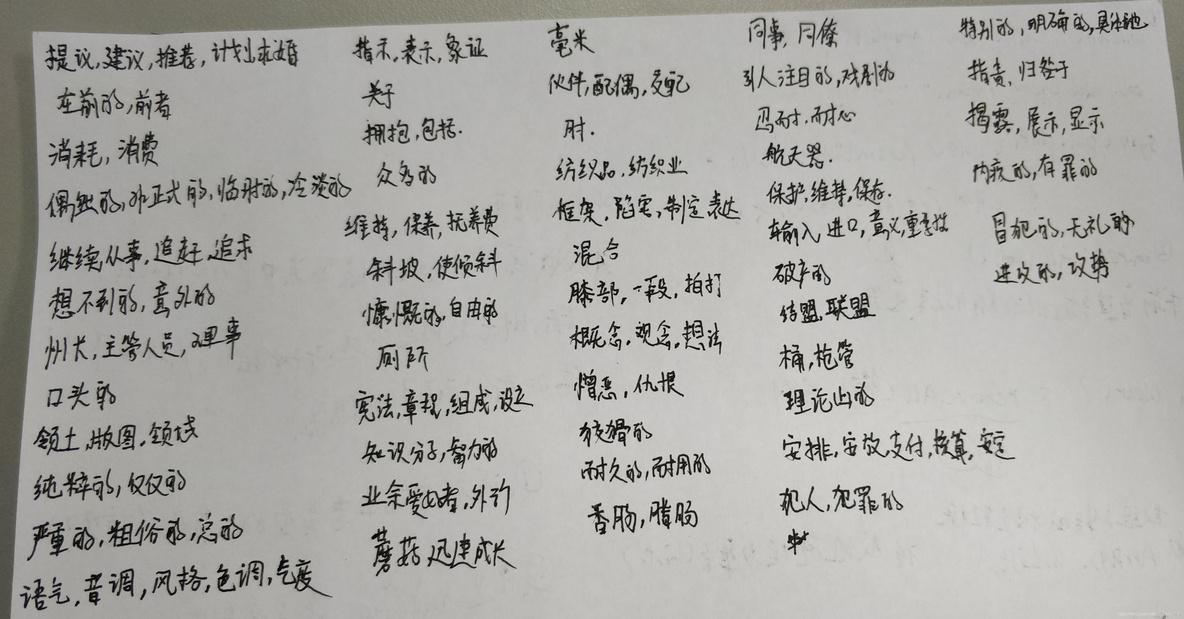 提议,建议,推荐,计划,求婚
在前的,前者
消耗,消费
偶然的,非正式的,临时的,冷淡的
继续,从事,追赶,追求
想不到的,意外的
州长,主管人员,理事
口头的
领土,版图,领域
纯粹的,仅仅的
严重的,粗俗的,总的
语气,音调,风格,色调,气度
指示,表示,象征
关于
拥抱,包括.
众多的
维持,保养,抚养费
斜坡,使倾斜
慷慨的,自由的
厕所
宪法,章程,组成,设立
知识分子,智力的
业余爱好者,外行
蘑菇,迅速成长
毫米
伙伴,配偶,交配
肘.
纺织品,纺织业
框架,陷害,制定,表达
混合
膝部,一段,拍打
概念,观念,想法
憎恶,仇恨
狡猾的
耐久的,耐用的
香肠,腊肠
同事,同僚
引人注目的,戏剧的
忍耐,耐心
航天器.
保护,维持,保存.
输入,进口,意义,重要性
破产的
结盟,联盟
桶,枪管
理论上的
安排,安放,支付,核算,安定
犯人,犯罪的
特别的,明确的,具体地
指责,归咎于
揭露,展示,显示
内疚的,有罪的
冒犯的,无礼的
进攻的,攻势